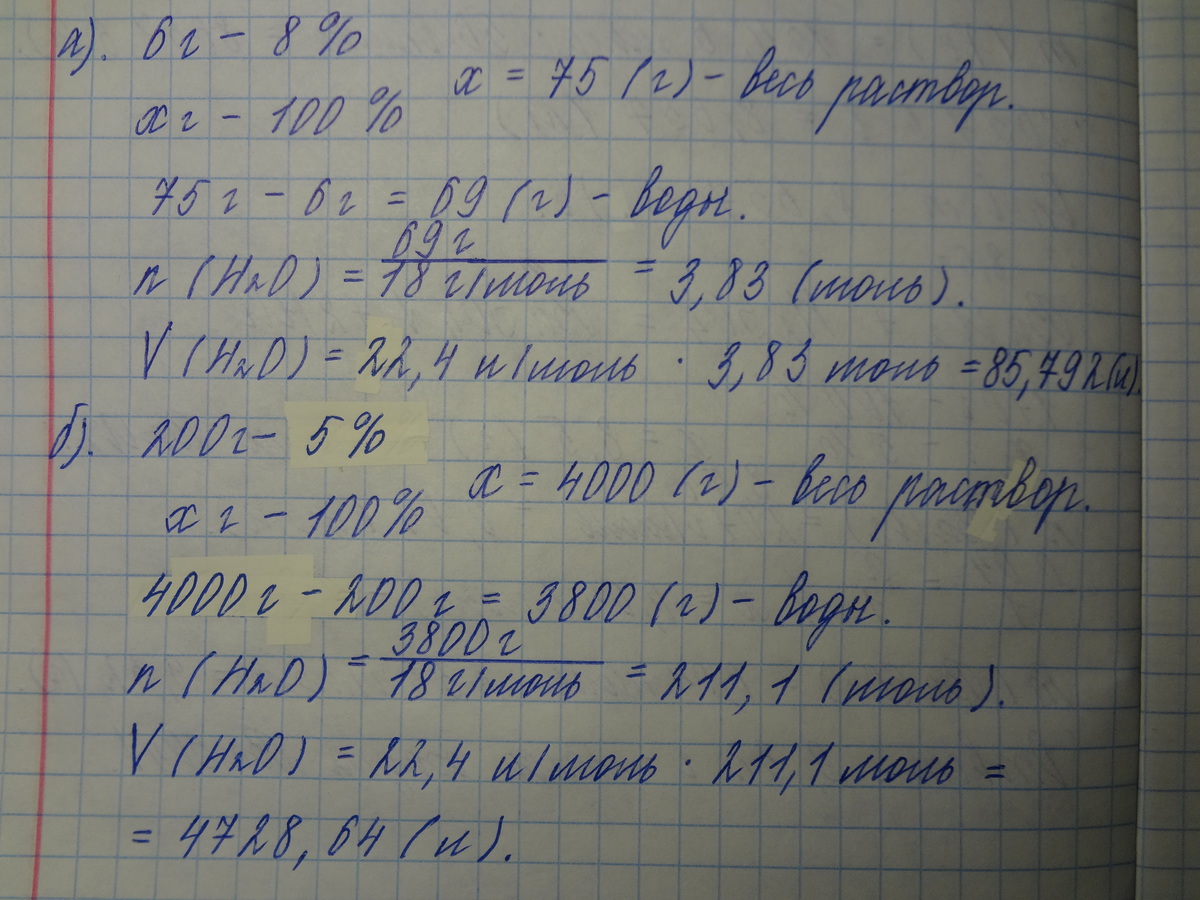 а). 6 г - 8 %
х г - 100 %
х = 75 (г) - весь раствор.
75 г - 6 г = 69 (г) - воды.
n (H₂O) = 69 г / 18 г/моль = 3,83 (моль).
V (H₂O) = 22,4 л/моль · 3,83 моль = 85,792 (л).
б). 200 г - 5 %
х г - 100 %
х = 4000 (г) - весь раствор.
4000 г - 200 г = 3800 (г) - воды.
n (H₂O) = 3800 г / 18 г/моль = 211,1 (моль).
V (H₂O) = 22,4 л/моль · 211,1 моль =
= 4728,64 (л).